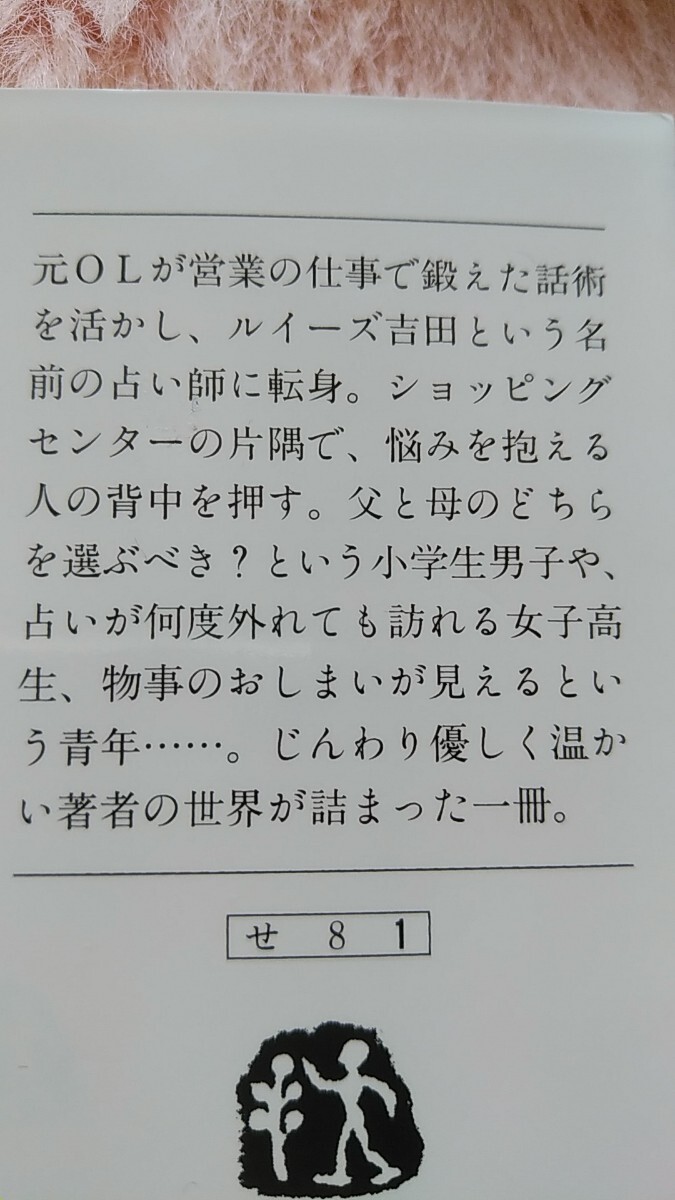 元ОＬが営業の仕事で鍛えた話術
を活かし、ルイーズ吉田という名
前の占い師に転身。ショッピング
センターの片隅で、悩みを抱える
人の背中を押す。父と母のどちら
を選ぶべき？という小学生男子や、
占いが何度外れても訪れる女子高
生、物事のおしまいが見えるとい
う青年……。じんわり優しく温か
い著者の世界が詰まった一冊。
せ 8 1